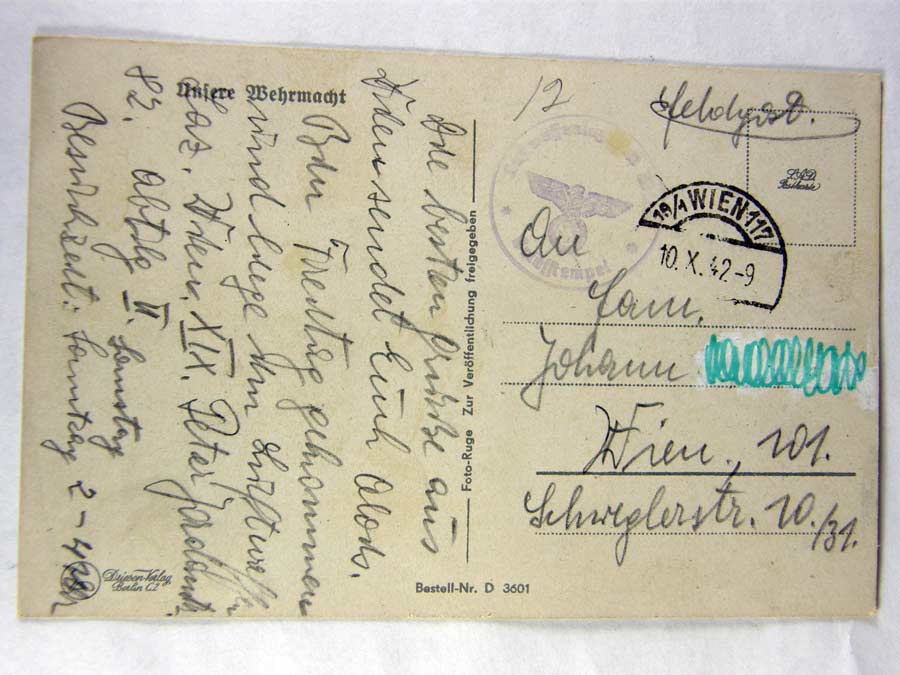 Unsere Wehrmacht
Die besten Grüße aus
Wien sendet Euch Alois.
Bin Freitag gekommen
und liege im Luftwaffen
Laz. Wien XIX. Peter Jordanstr.
82. Abtlg II. Samstag
Besuchszeit: Sonntag 2-4 Uhr
Foto-Ruge Zur Veröffentlichung freigegeben
Bestell-Nr. D 3601
Driesen-Verlag
Berlin C2
12
Feldpost.
Postkarte
19/1 WIEN 117
10. X. 42-9
An
Fam.
Johann
Wien, 101.
Schweglerstr. 10./31.